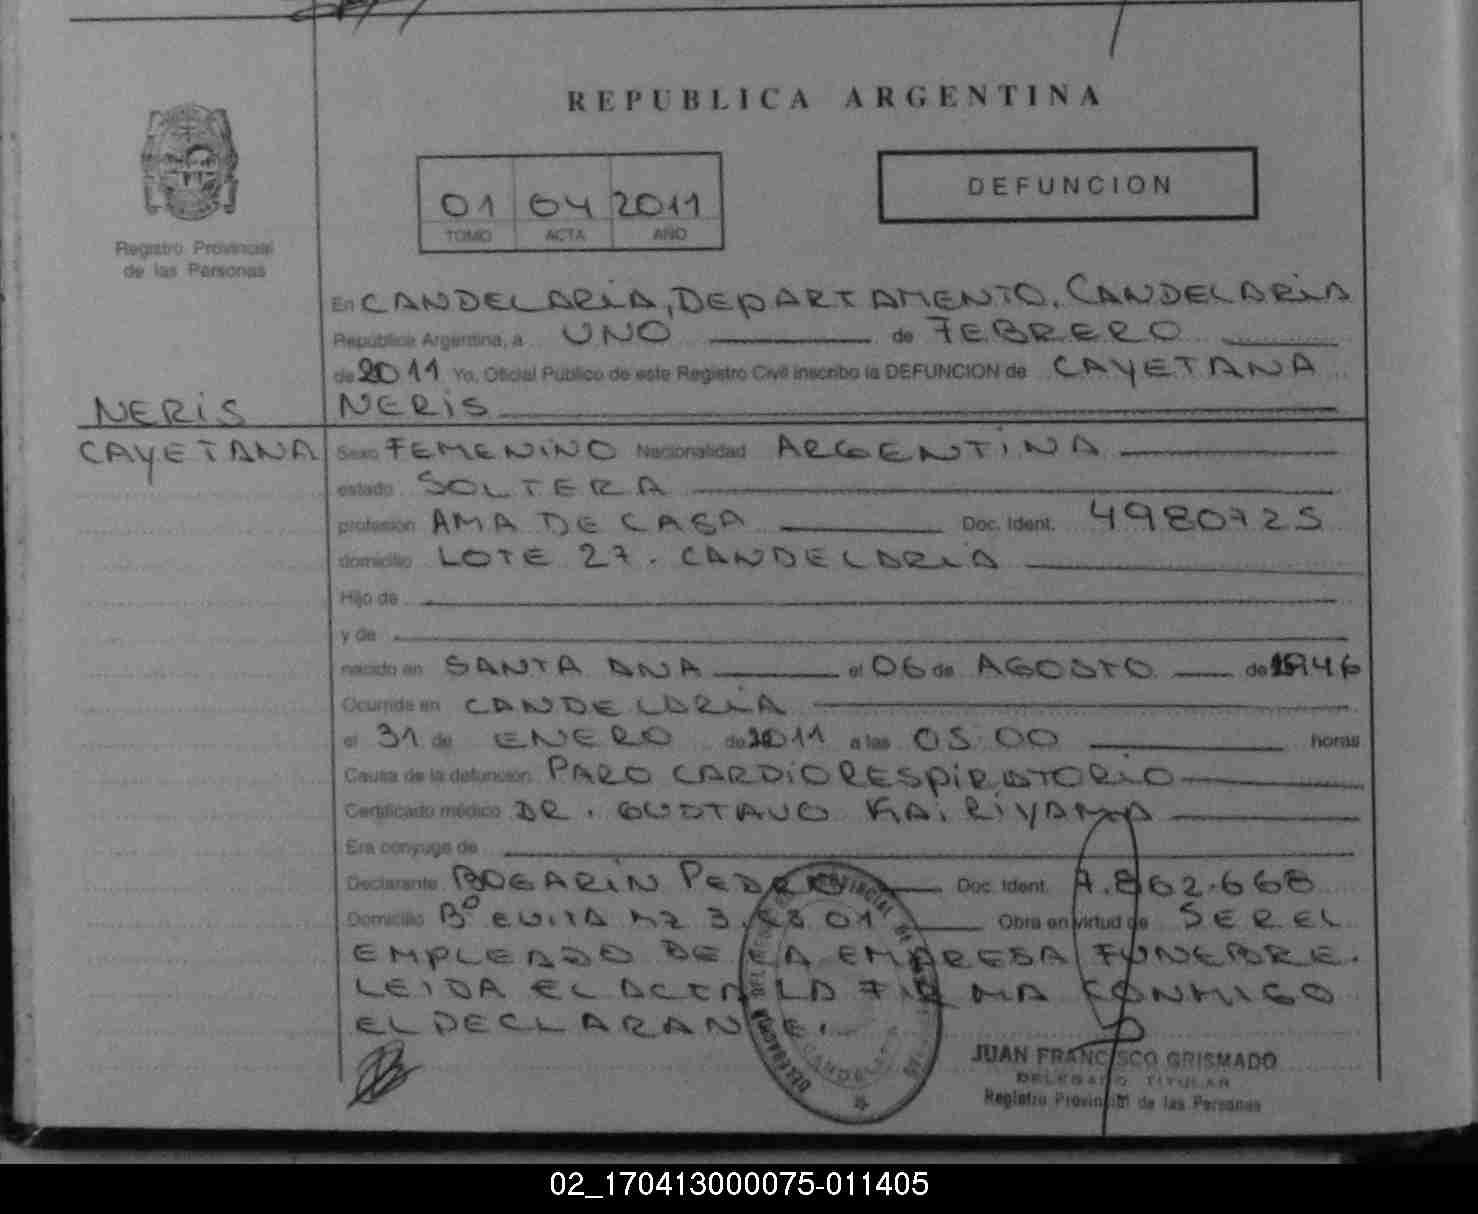 REPUBLICA ARGENTINA
01 04 2011
TOMO ACTA AÑO
DEFUNCION
Registro Provincial
de las Personas
En CANDELARIA, DEPARTAMENTO. CANDELARIA
República Argentina, a UNO de FEBRERO
de 2011 Yo, Oficial Público de este Registro Civil inscribo la DEFUNCION de CAYETANA
NERIS
NERIS
CAYETANA
Sexo FEMENINO Nacionalidad ARGENTINA
estado SOLTERA
profesión AMA DE CASA Doc. Ident. 4980725
domicilio LOTE 27. CANDELARIA
Hijo de
y de
nacido en SANTA ANA el 06 de AGOSTO de 1946
Ocurrida en CANDELARIA
el 31 de ENERO de 2011 a las 05:00 horas
Causa de la defunción PARO CARDIORESPIRATORIO
Certificado médico DR. GUSTAVO KAIRIYAMA
Era conyuge de
Declarante BOGARIN PEDRO Doc. Ident. 7.862.668
Domicilio Bº EVITA MZ 3. 01 Obra en virtud de SER EL
EMPLEADO DE LA EMPRESA FUNEBRE.
LEIDA EL ACTA LA FIRMA CONMIGO
EL DECLARANTE.
JUAN FRANCISCO GRISMADO
DELEGADO TITULAR
Registro Provincial de las Personas
02_170413000075-011405